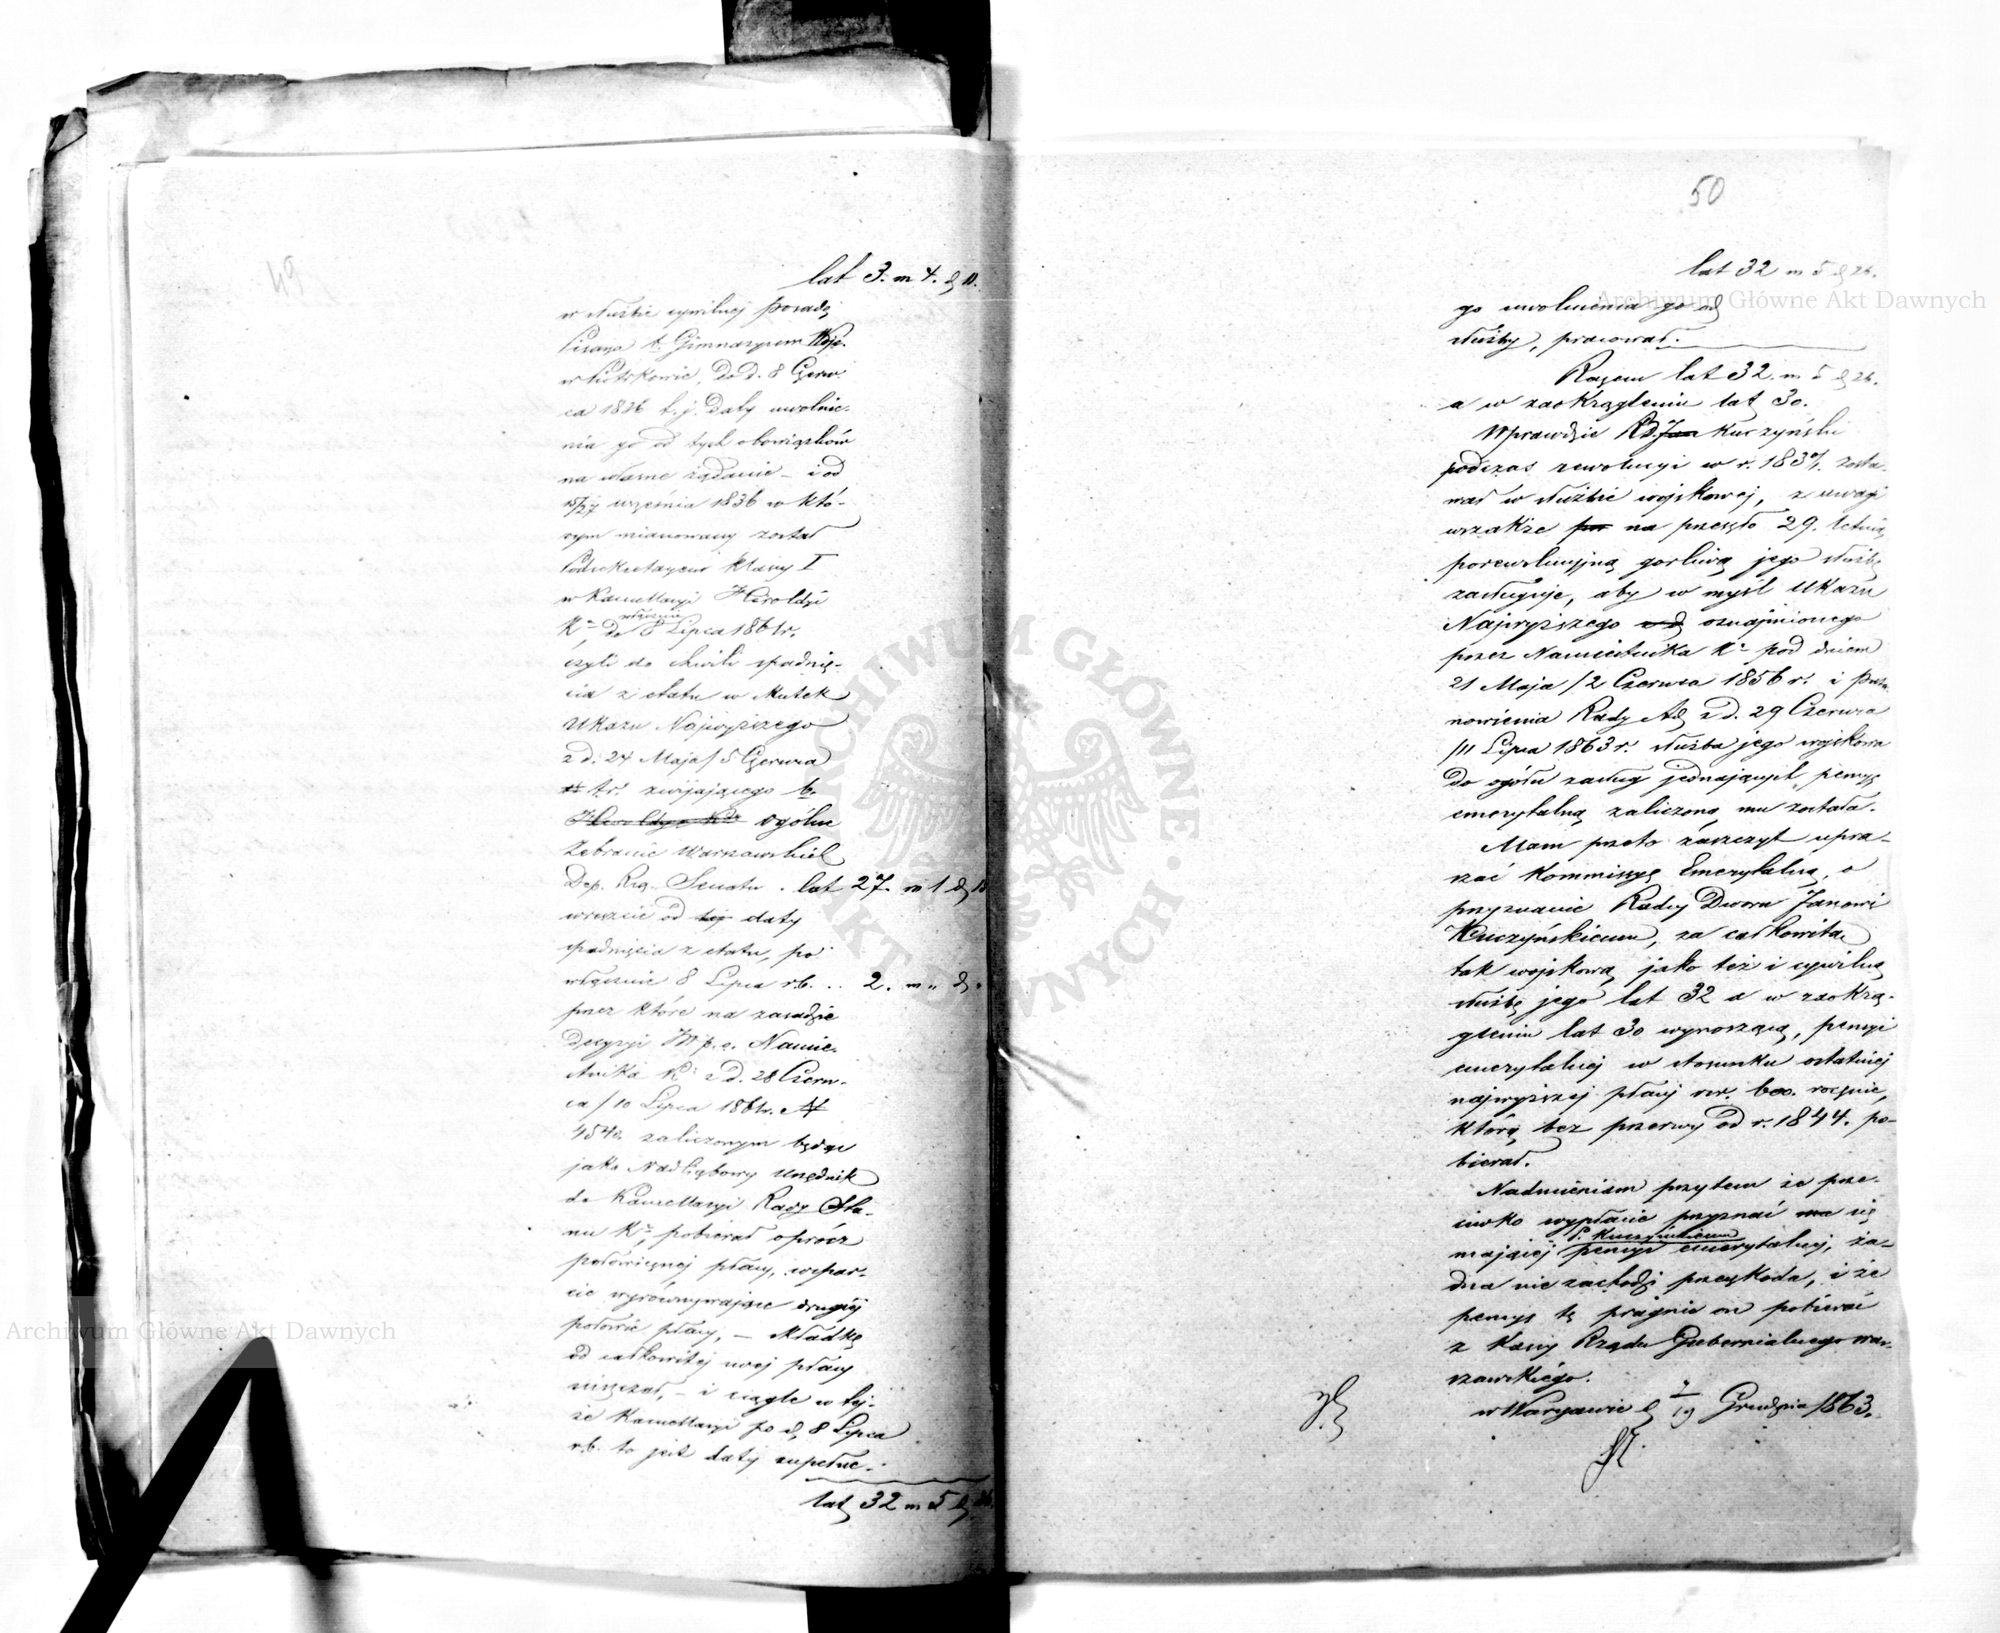 lat 3. m 4. d 11.
w służbie cywilnej posadę
Pisarza b. Gimnazyum Woje.
w Piotrkowie, do d. 8 Czerw-
ca 1836 t. j. daty uwolnie-
nia go od tych obowiązków
na własne żądanie – i od
15/27 września 1836 w któ-
rym mianowany został
Podsekretarzem klassy I
w Kancellaryi Heroldyi
Kr. do 8 Lipca 1861 r.
włącznie
czyli do chwili spadnię-
cia z etatu w skutek
Ukazu Najwyższego
z d. 24 Maja / 5 Czerwca
t. r. zwijającego b.
Heroldyę Kr. ogólne
Zebranie Warszawskich
Dep. Rzą. Senatu . lat 27. m 1 d
wreszcie od tej daty
spadnięcia z etatu, po
włącznie 8 Lipca r.b. .. 2. m „ d „
przez które na zasadzie
Decyzyi JW p. o. Namie-
stnika Kr. z d. 28 Czerw-
ca / 10 Lipca 1861 r. N
zaliczonym będąc
jako Nadliczbowy urzędnik
do Kancellaryi Rady Sta-
nu Kr., pobierał oprócz
połowicznej płacy, wspar-
cie wyrównywające drugiej
połowie płacy, – składkę
od całkowitej swej płacy
uiszczał, – i ciągle w tej-
że Kancellaryi po d. 8 Lipca
r.b. to jest daty zupełne-
lat 32 m 5 d 26.
50
lat 32 m 5 d 26.
go uwolnienia go od
służby, pracował.
Razem lat 32. m 5 d 26.
a w zaokrągleniu lat 30.
Wprawdzie R.D. Jan Kuczyński
podczas rewolucyi w r. 1830/1. zosta-
wał w służbie wojskowej, z uwagi
wszakże na przeszło 29. letnią
porewolucyjną gorliwą jego służbę
zasługuje, aby w myśl Ukazu
Najwyższego oznajmionego
przez Namiestnika Kr. pod dniem
21 Maja / 2 Czerwca 1856 r. i Posta-
nowienia Rady Ad. z d. 29 Czerwca
/ 11 Lipca 1863 r. służba jego wojskowa
do ogółu zasług jednających pensyę
emerytalną zaliczoną mu została.
Mam przeto zaszczyt upra-
szać Kommissyę Emerytalną, o
przyznanie Radcy Dworu Janowi
Kuczyńskiemu, za całkowitą
tak wojskową jako też i cywilną
służbę jego lat 32 a w zaokrą-
gleniu lat 30 wynoszącą, pensyi
emerytalnej w stosunku ostatniej
najwyższej płacy rsr. 600. rocznie,
którą bez przerwy od r. 1844. po-
bierał.
Nadmieniam przytem że prze-
ciwko wypłacie przyznać się
P. Kuczyńskiemu
mającej pensyi emerytalnej, ża-
dna nie zachodzi przeszkoda, i że
pensyę tę pragnie on pobierać
z Kassy Rządu Gubernialnego War-
szawskiego.
w Warszawie d. 7/19 Grudnia 1863.
Archiwum Główne Akt Dawnych
Archiwum Główne Akt Dawnych
ARCHIWUM GŁÓWNE · AKT DAWNYCH ·